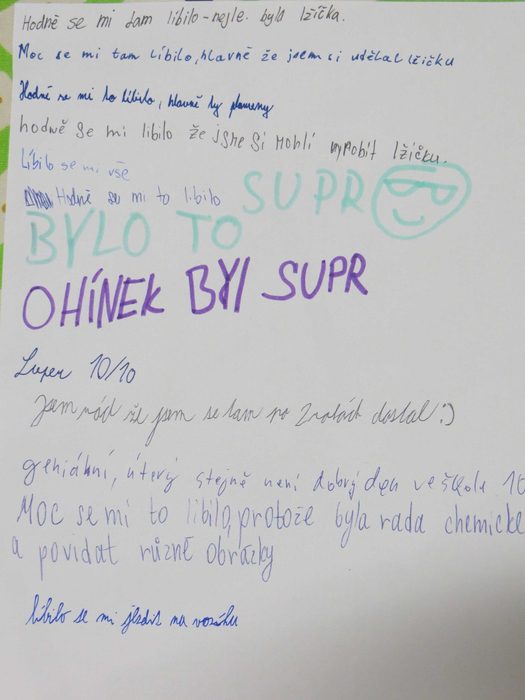 Hodně se mi tam líbilo - nejle. byla lžíčka.
Moc se mi tam líbilo, hlavně že jsem si udělal lžičku
Hodně se mi to líbilo, hlavně ty plameny
hodwě se mi libilo že jsme si mohli vyrobit lžičku.
Líbilo se mi vše
Hodně se mi to libilo
SUPR
BYLO TO
OHÍNEK BYl SUPR
Super 10/10
Jsem rád že jsem se tam po dostal :)
geniální, úterý stejně není dobrý den ve škole 10
Moc se mi to líbilo, protože byla rada chemicke
a povidat různě obrázky
líbilo se mi na vozíku